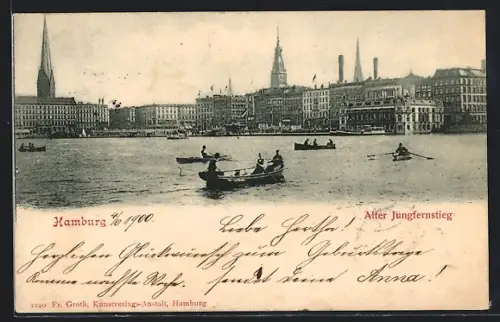 Hamburg 4/6 1900. Alter Jungfernstieg
Liebe Herthe!
Herzlichen Glückwunsch zum Geburtstage
Komme nächste Woche. sendet Deine Anna!
1240 Fr. Groth, Kunstverlags-Anstalt, Hamburg